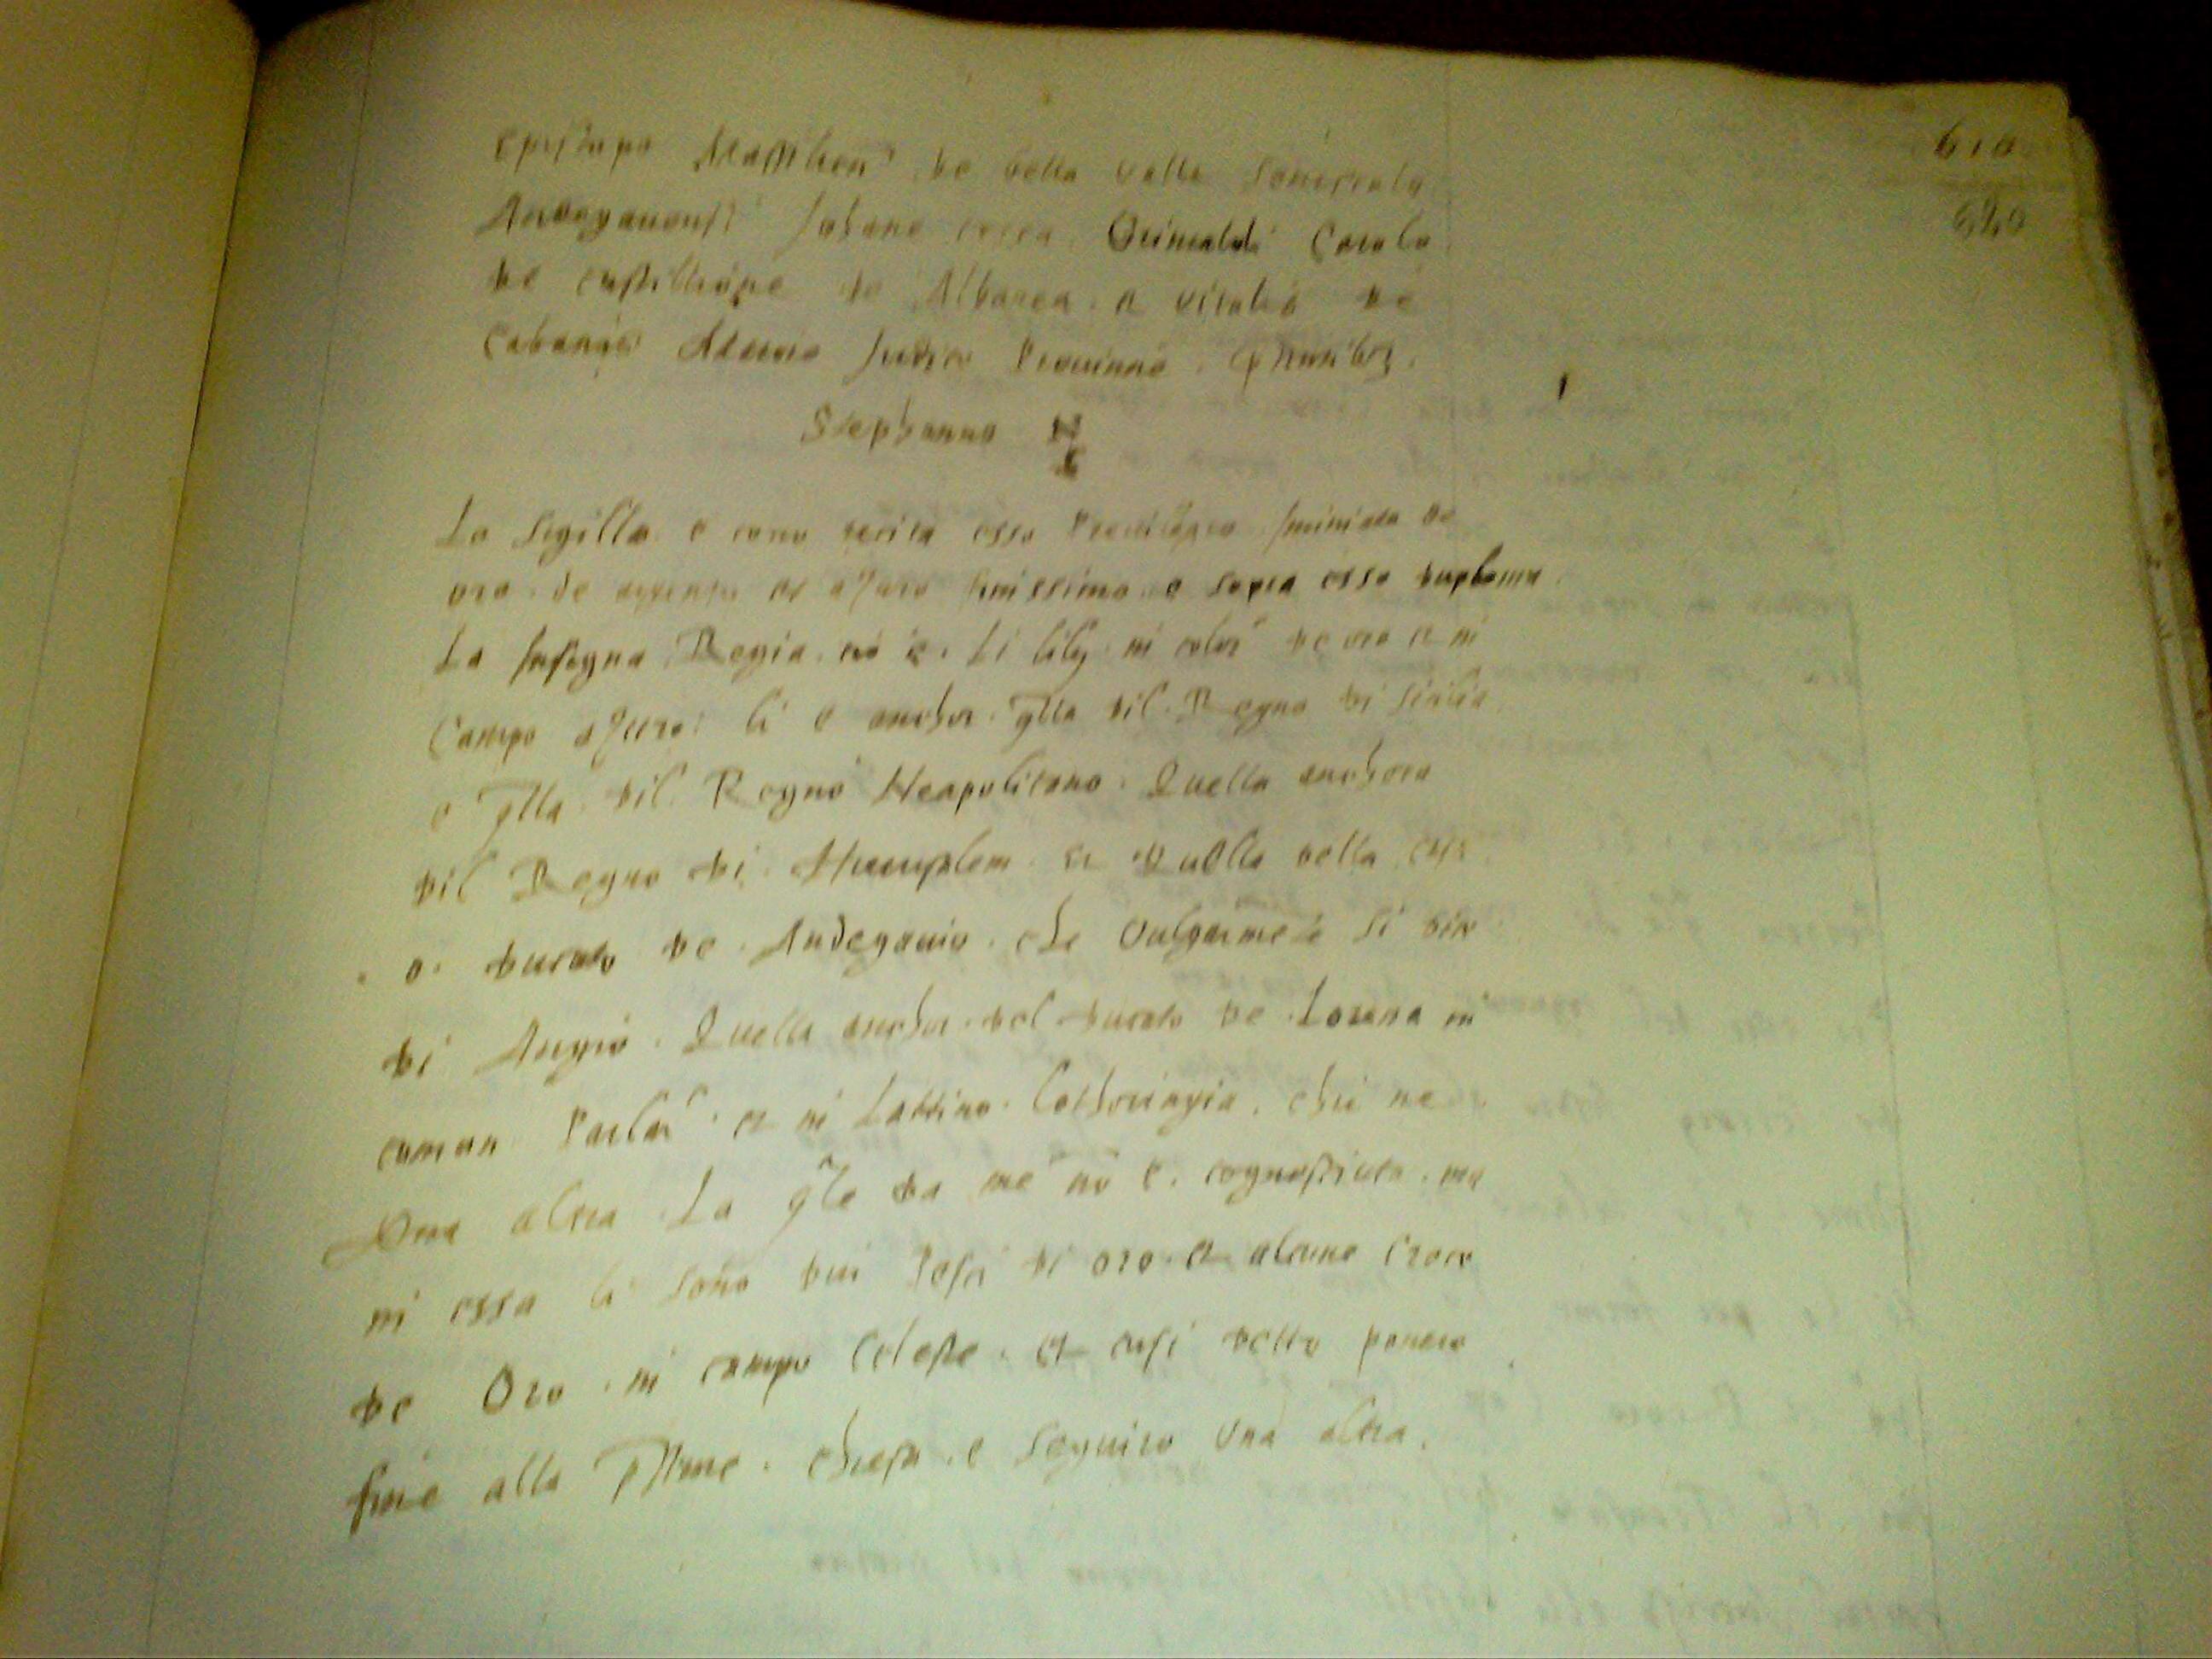 610
640
Episcopo Massilien de bella valle Senescalo
Andegauensi Johane cossa Grimaldi Carolo
de castillione de Albanea et vitalis de
Cabanis Maioris Judice Prouincie
Stephanus
Lo Sigillo e como recita esso Preuilegio miniato de
oro de argento et asuro finissimo e sopra esso duploma
La Insegna Regia cio e Li lily in color de oro et in
Campo asuro li e anchor qlla dil Regno di Sicilia
e qlla dil Regno Neapolitano Quella anchora
dil Regno di Hierusalem et Quella della
o ducato de Andegauio che Vulgarmete si dice
di Angio Quella anchor del ducato de Lorena in
comun Parlar et in Lattino Lothoringia chi ne
Una altra La qle da me no e cognosciuta ma
in essa li sono dui Pesci di oro et alcune Croce
de Oro in campo Celeste et cusi detto ponero
fine alla pnte e seguiro una altra